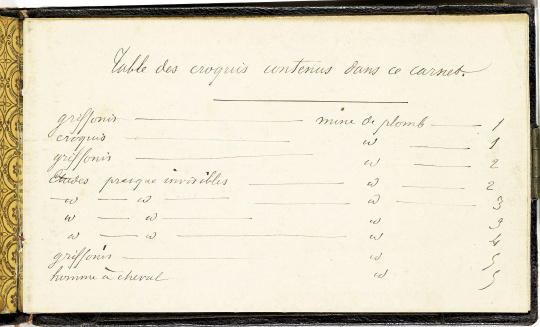 Table des croquis contenus dans ce carnet.
griffonis — mine de plomb — 1
croquis — " — 1
griffonis — " — 2
Etudes presque invisibles — " — 2
" — " — " — 3
" — " — " 3
" — " — " 4
griffonis — " 5
homme à cheval " 5